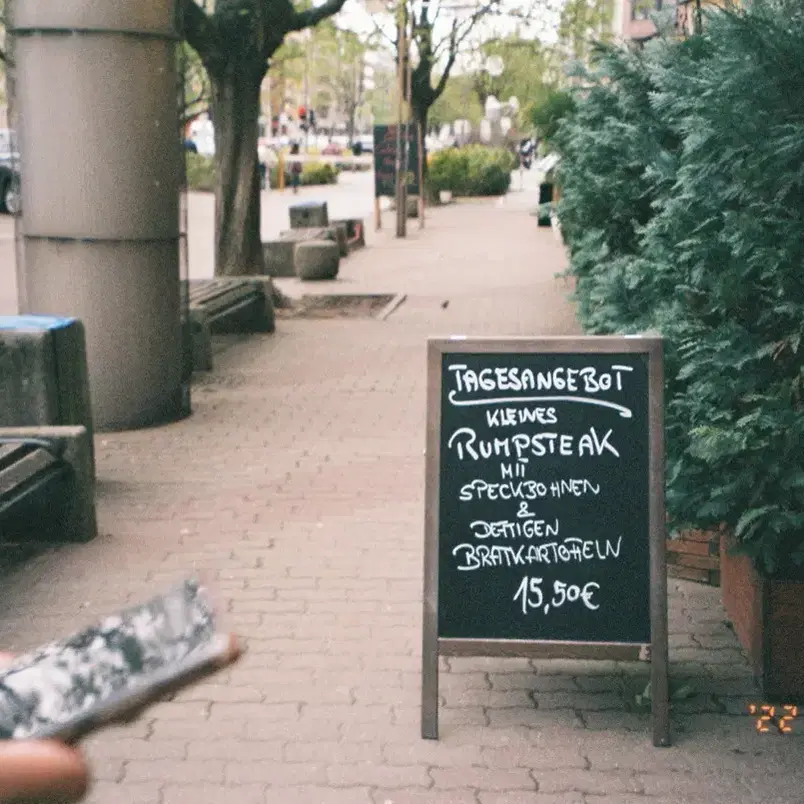 TAGESANGEBOT
KLEINES
RUMPSTEAK
MIT
SPECKBOHNEN
&
DEFTIGEN
BRATKARTOFFELN
15,50€
'22